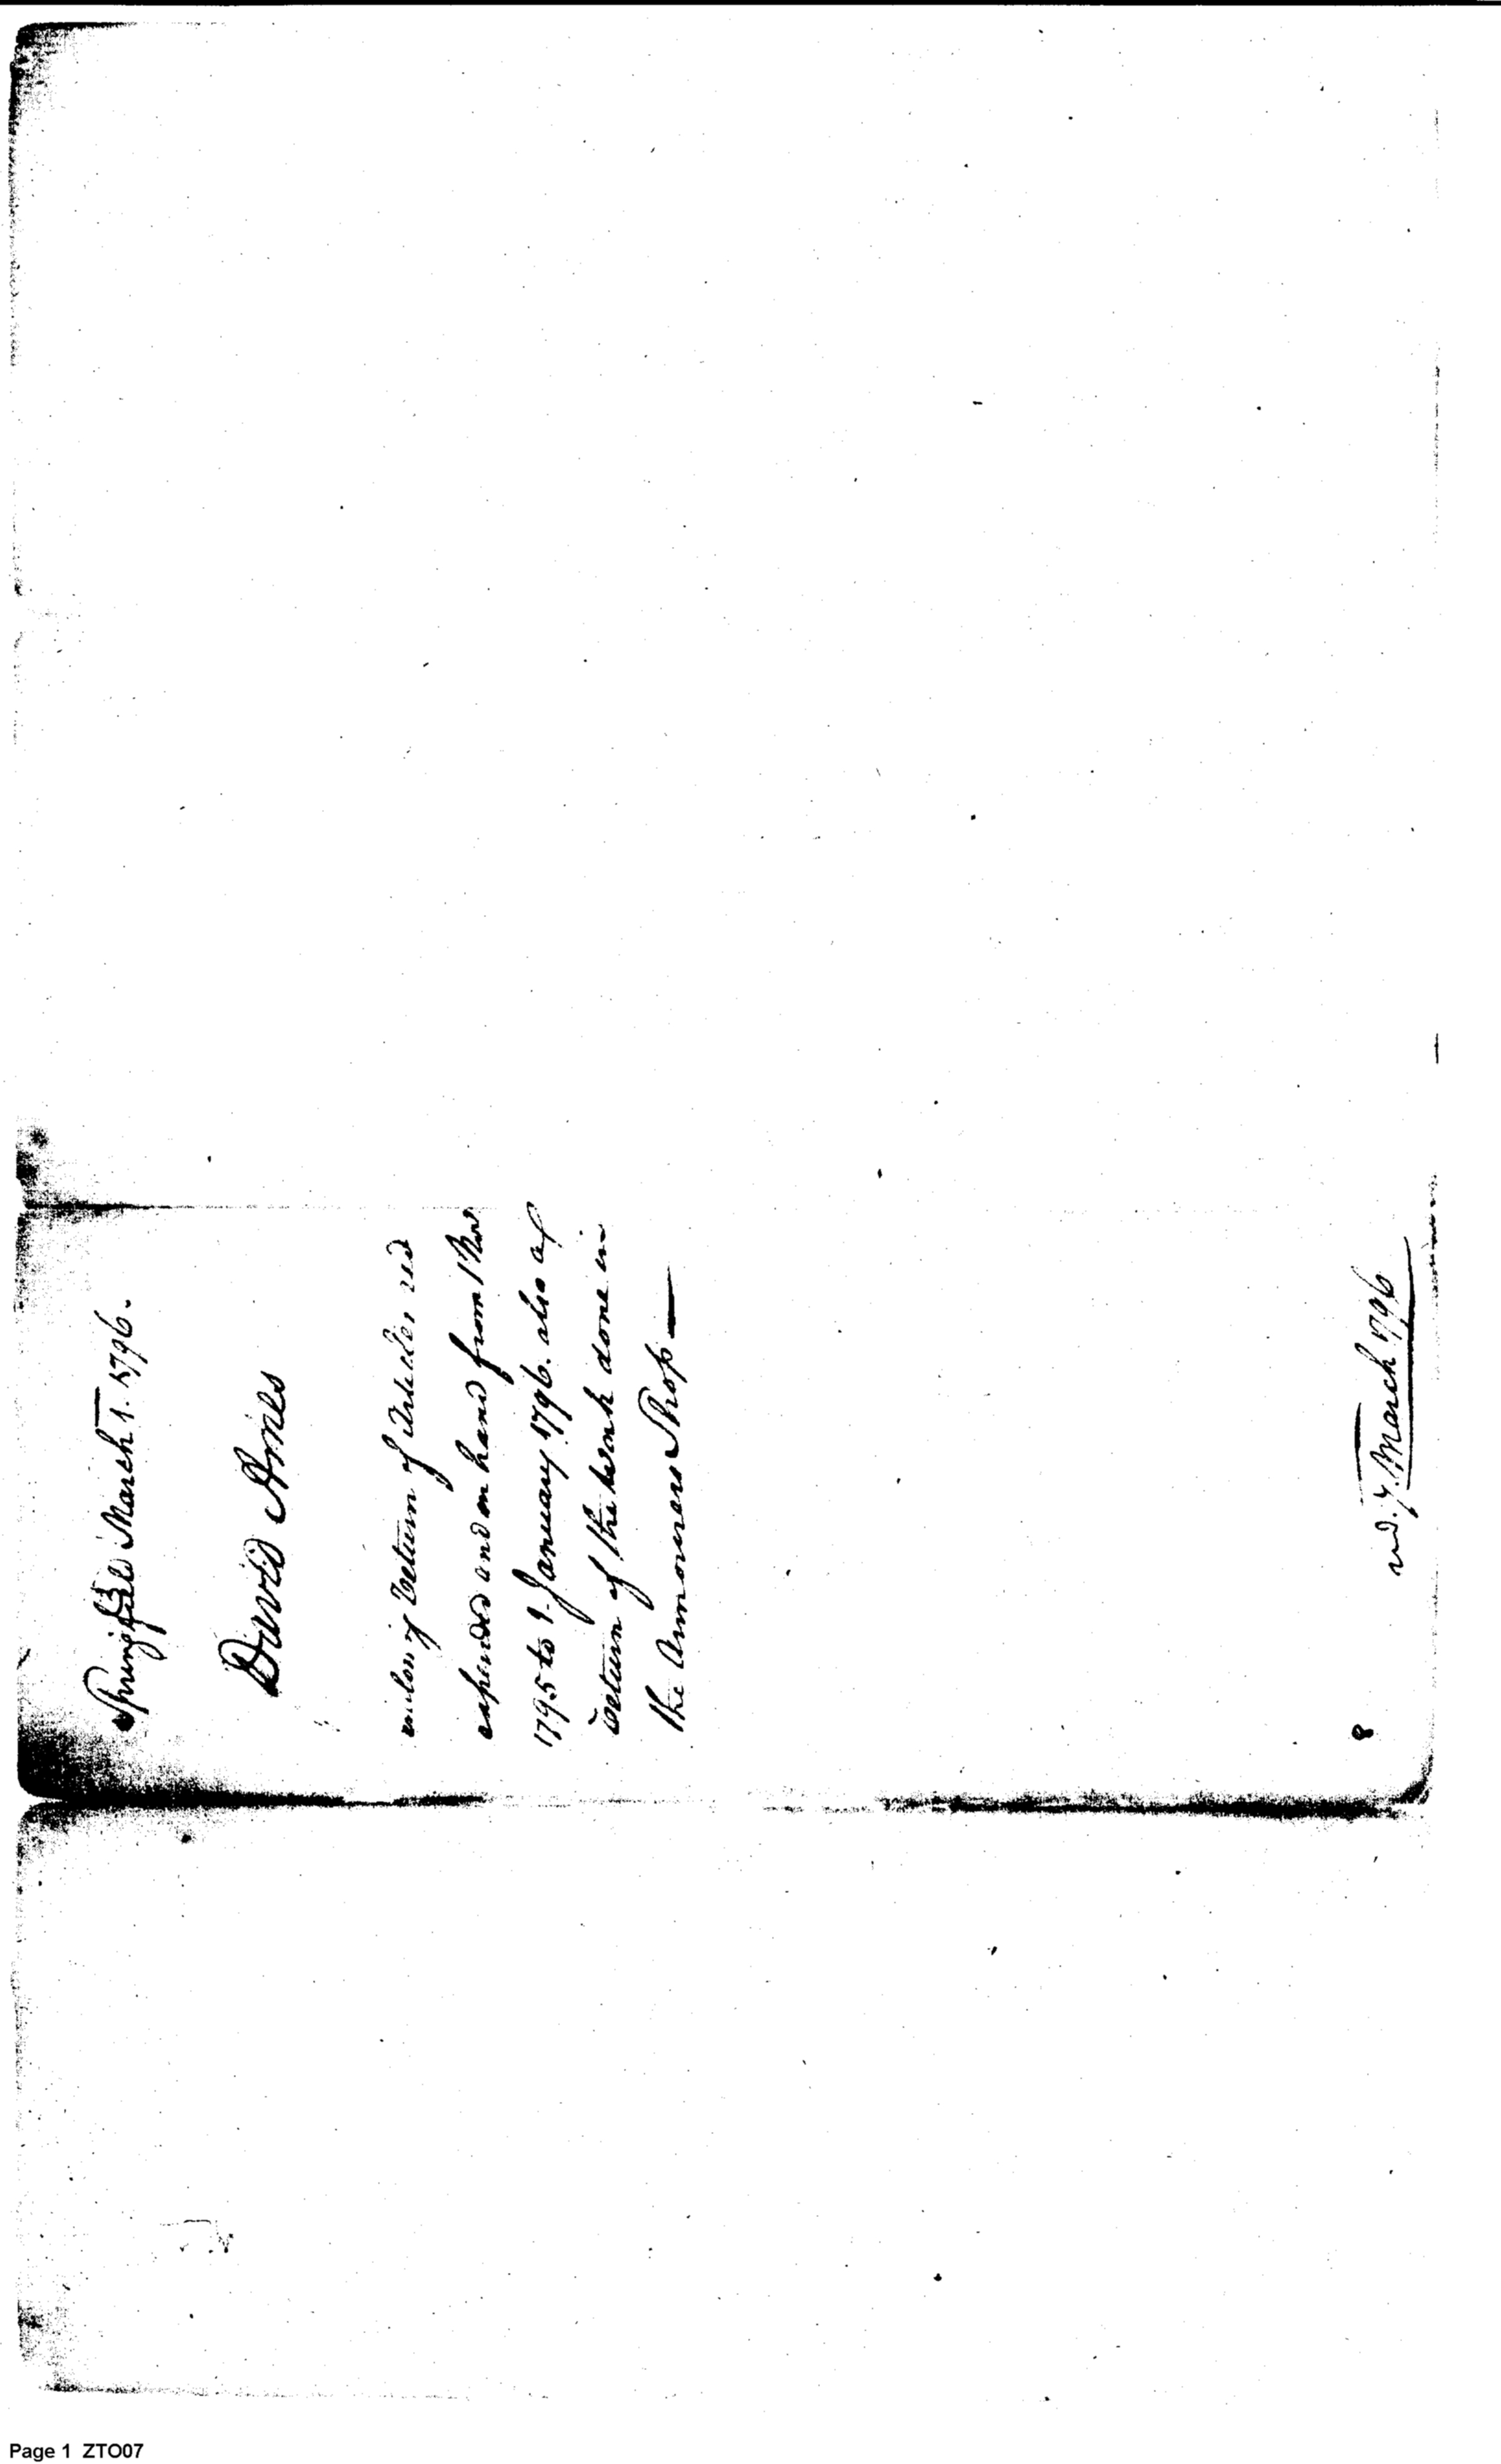 Springfield March 1. 1796.
David Ames
inclosing Return of Articles recd
expended and on hand from 1 Nov
1795 to 1. January 1796. also of
Return of the work done in
the Armourers Shop —
recd. 7. March 1796
8
Page 1 ZTO07